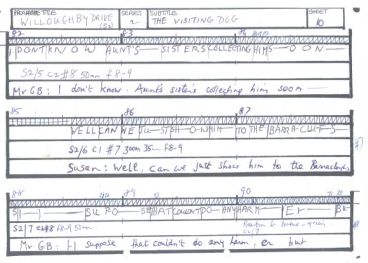 PROGRAMME TITLE WILLOUGHBY DRIVE SERIES 2 SUBTITLE THE VISITING DOG SHEET 10
82 83 84
I DON'T KNOW AUNT'S SISTER'S COLLECTING HIM SOON
S2/5 C2 #8 50mm f8-9
Mr GB: I don't know. Aunt's sister's collecting him soon
85 86 87
WELL CAN WE JU-ST SHOW HIM TO THE BARRACLUFFS
S2/6 C1 #7 35mm f8-9
Susan: Well, can we just show him to the Barracluffs
88 89 90
I SUPPO-SE THAT COULDN'T DO ANY HARM ER BU
S2/7 C2 #8
Mr GB: I-I suppose that couldn't do any harm er but